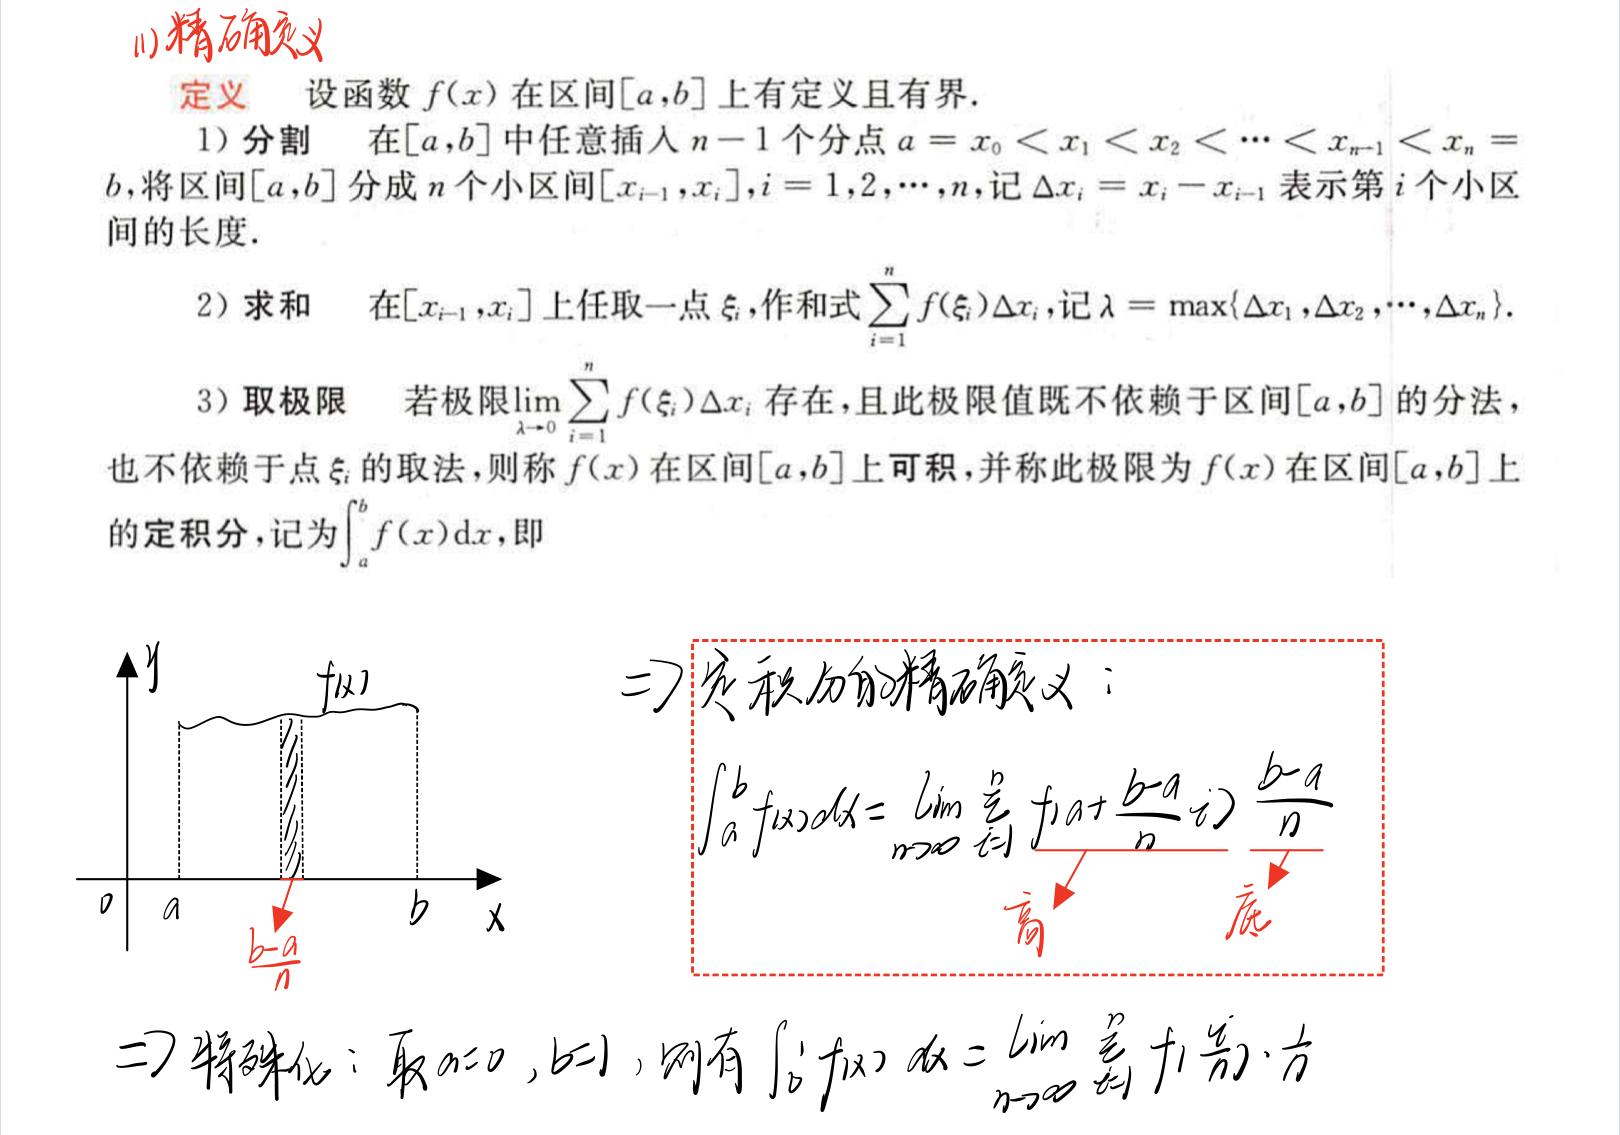 (1)精确定义
定义 设函数 f(x) 在区间[a,b] 上有定义且有界.
1) 分割 在[a,b] 中任意插入 n−1 个分点 a = x₀ < x₁ < x₂ < ⋯ < xₙ₋₁ < xₙ =
b,将区间[a,b] 分成 n 个小区间[xᵢ₋₁,xᵢ],i = 1,2,⋯,n,记 Δxᵢ = xᵢ − xᵢ₋₁ 表示第 i 个小区
间的长度.
2) 求和 在[xᵢ₋₁,xᵢ] 上任取一点 ξᵢ,作和式 ∑_{i=1}^{n} f(ξᵢ)Δxᵢ,记 λ = max{Δx₁,Δx₂,⋯,Δxₙ}.
3) 取极限 若极限 lim_{λ→0} ∑_{i=1}^{n} f(ξᵢ)Δxᵢ 存在,且此极限值既不依赖于区间[a,b] 的分法,
也不依赖于点 ξᵢ 的取法,则称 f(x) 在区间[a,b] 上可积,并称此极限为 f(x) 在区间[a,b] 上
的定积分,记为 ∫_a^b f(x)dx,即
y
f(x)
0 a b x
b-a/n
⇒ 定积分的精确定义：
∫_a^b f(x)dx = lim_{n→∞} ∑_{i=1}^{n} f(a+ b-a/n i) b-a/n
高 底
⇒ 特殊化：取a=0, b=1, 则有 ∫_0^1 f(x) dx = lim_{n→∞} ∑_{i=1}^{n} f(i/n)·1/n